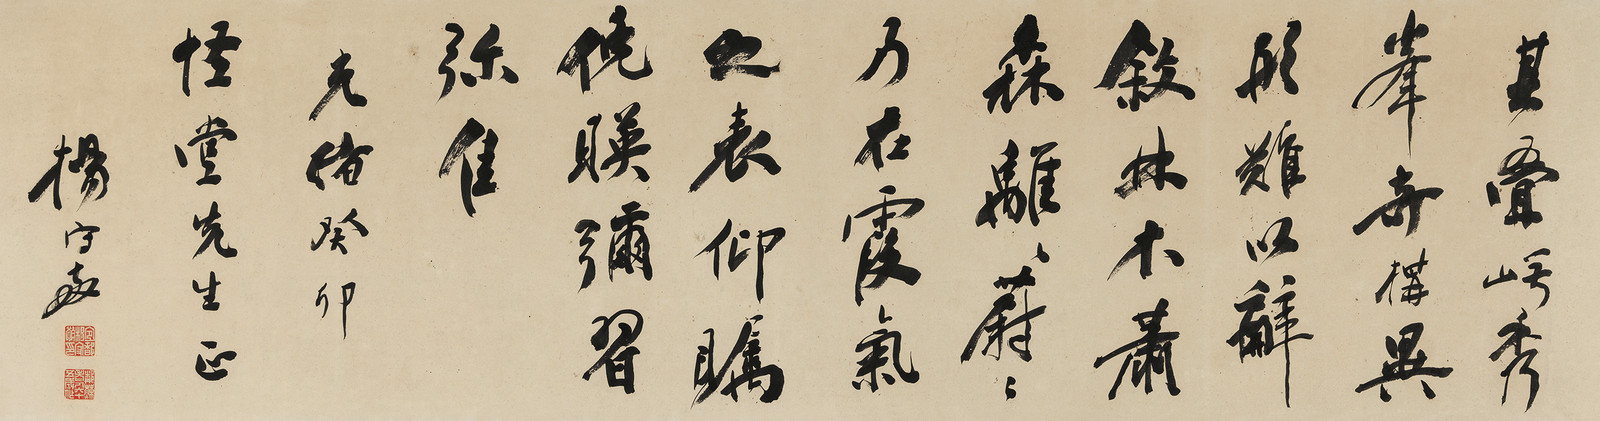 其疊崿秀
峯奇構異
形難以辭
敘林木蕭
森離〻蔚〻
乃在霞氣
之表仰矚
俛暎彌習
弥佳
光緒癸卯
怪堂先生正
楊守敬